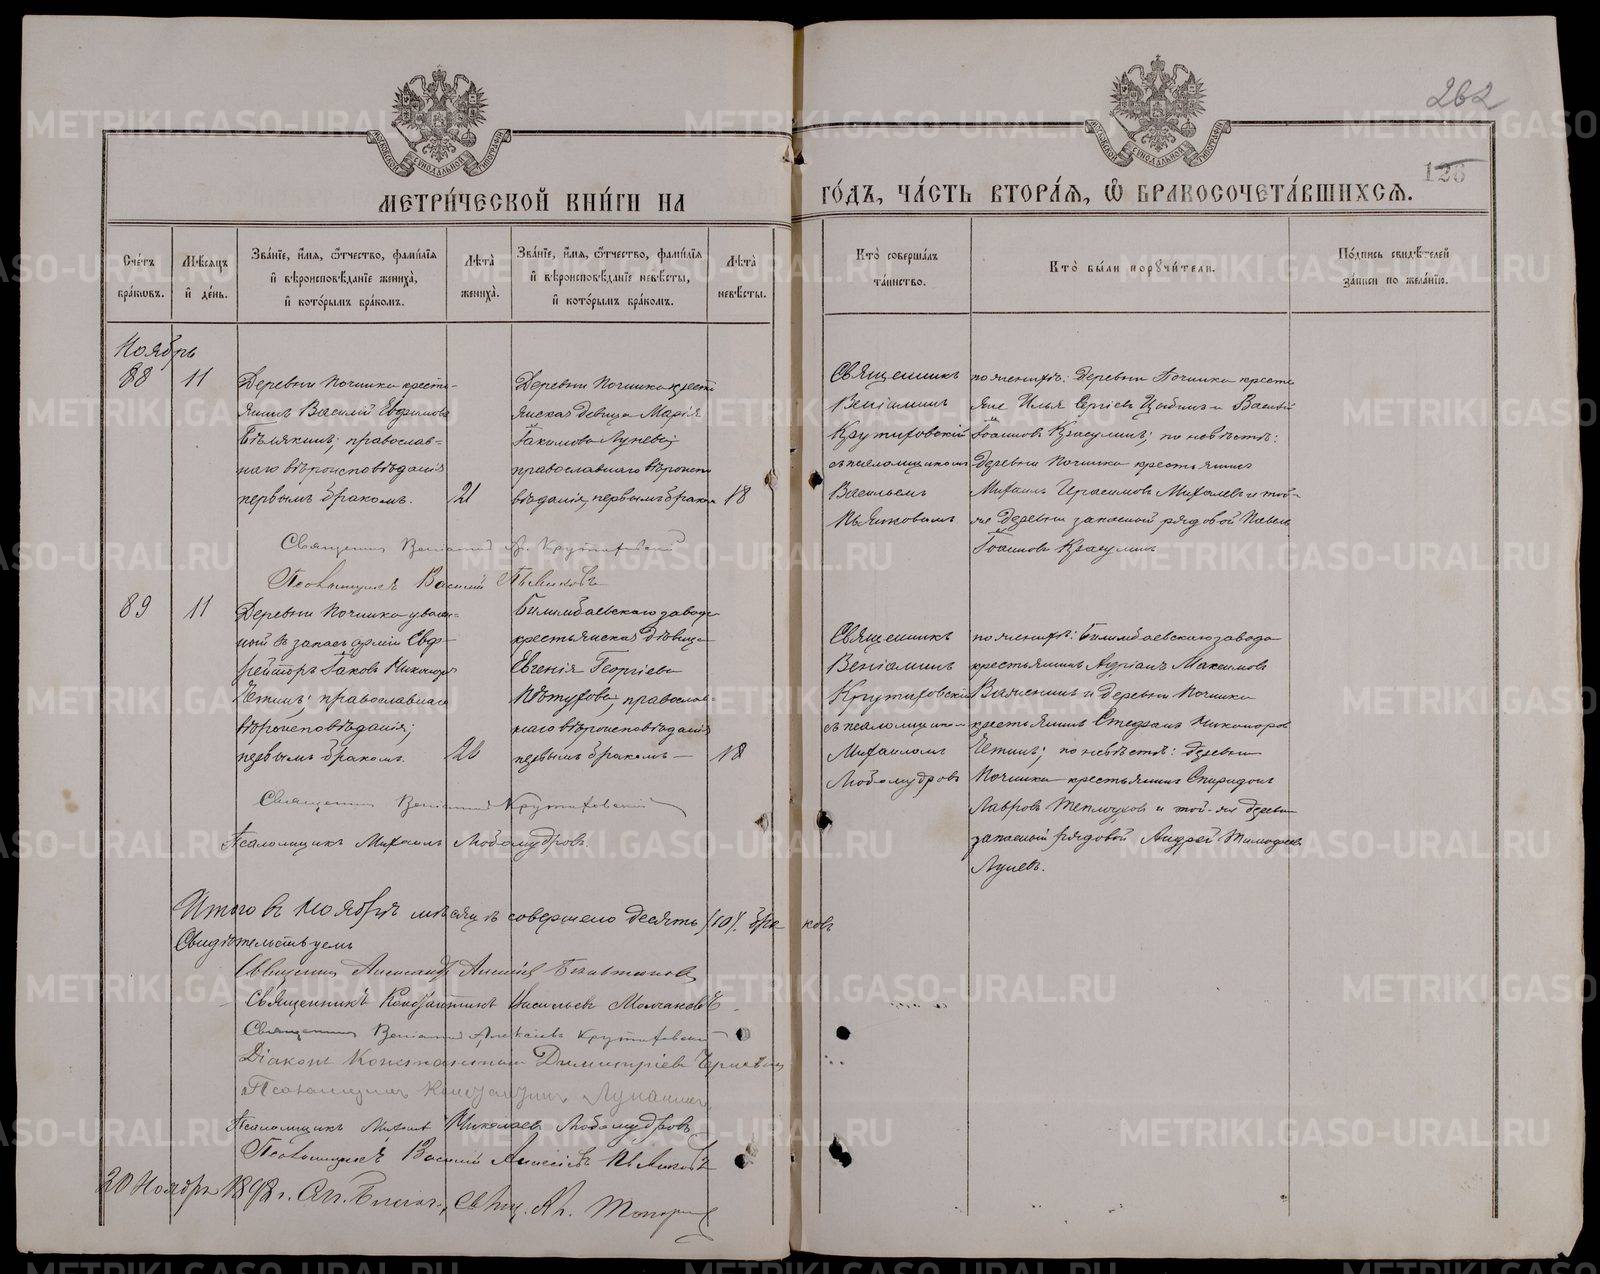 262
126
МОСКОВСКОЙ СѴНОДАЛЬНОЙ ТИПОГРАФІИ
МОСКОВСКОЙ СѴНОДАЛЬНОЙ ТИПОГРАФІИ
МЕТРИ́ЧЕСКОЙ КНИ́ГИ НА
ГО́ДЪ, ЧА́СТЬ ВТОРА́Я, Ѽ БРАКОСОЧЕТА́ВШИХСЯ.
Сче́тъ бра́ковъ.
Мѣ́сяцъ и҆ де́нь.
Зва́нїе, и҆́мѧ, ѻ҆́тчество, фами́лїѧ и҆ вѣроисповѣ́данїе жениха̀, и҆ кото́рымъ бра́комъ.
Лѣ́та жениха̀.
Зва́нїе, и҆́мѧ, ѻ҆́тчество, фами́лїѧ и҆ вѣроисповѣ́данїе невѣ́сты, и҆ кото́рымъ бра́комъ.
Лѣ́та невѣ́сты.
Кто̀ соверша́лъ та́инство.
Кто̀ бы́ли порꙋчи́тели.
По́дпись свидѣ́телей за́писи по жела́нїю.
Ноябрь
88
11
Деревни Починка кресть-
янинъ Василій Евфимовъ
Бѣлякинъ; православ-
наго вѣроисповѣданія
первымъ бракомъ.
21
Деревни Починка кресть
янская девица Марія
Іакимова Лунева;
православнаго вѣроиспо
вѣданія, первымъ бракомъ
18
Священникъ
Веніаминъ
Крутиховскій
съ псаломщикомъ
Васильемъ
Пьянковымъ
по женихѣ: Деревни Починка кресть
яне Илья Сергіевъ и Василій
Іоанновъ; по невѣстѣ:
Деревни Починка крестьянинъ
Михаилъ Герасимовъ Михалевъ и той-
же Деревни запасный рядовой Павелъ
Іоанновъ
Священникъ Веніаминъ Крутиховскій
Псаломщикъ Василій Пьянковъ
89
11
Деревни Починка уволен-
ный въ запасъ арміи Ефр-
рейторъ Іаковъ Никаноровъ
Четинъ; православнаго
вѣроисповѣданія;
первымъ бракомъ.
26
Билимбаевскаго завода
крестьянская дѣвица
Евгенія Георгіева
Пѣтухова, православ-
наго вѣроисповѣданія
первымъ бракомъ —
18
Священникъ
Веніаминъ
Крутиховскій
съ псаломщико-
Михаиломъ
Любомудровъ
по женихѣ: Билимбаевскаго завода
крестьянинъ Адріанъ Максимовъ
и деревни Починка
крестьянинъ Стефанъ Никаноровъ
Четинъ; по невѣстѣ: деревни
Починка крестьянинъ Спиридонъ
Лавровъ Теплоуховъ и той-же деревни
запасный рядовой Андрей Тимофеевъ
Луневъ.
Священникъ Веніаминъ Крутиховскій
Псаломщикъ Михаилъ Любомудровъ.
Итого въ Ноябрѣ мѣсяцѣ совершено десять (10). браковъ
Свидѣтельствуемъ
Священникъ Александръ Алексіевъ
Священникъ Константинъ Васильевъ Молчановъ
Священникъ Веніаминъ Алексіевъ Крутиховскій
Діаконъ Константинъ Димитріевъ
Псаломщикъ
Псаломщикъ Михаилъ Николаевъ Любомудровъ
Псаломщикъ Василій Алексіевъ Пьянковъ
20 Ноября 1898 г.
METRIKI.GASO-URAL.RU